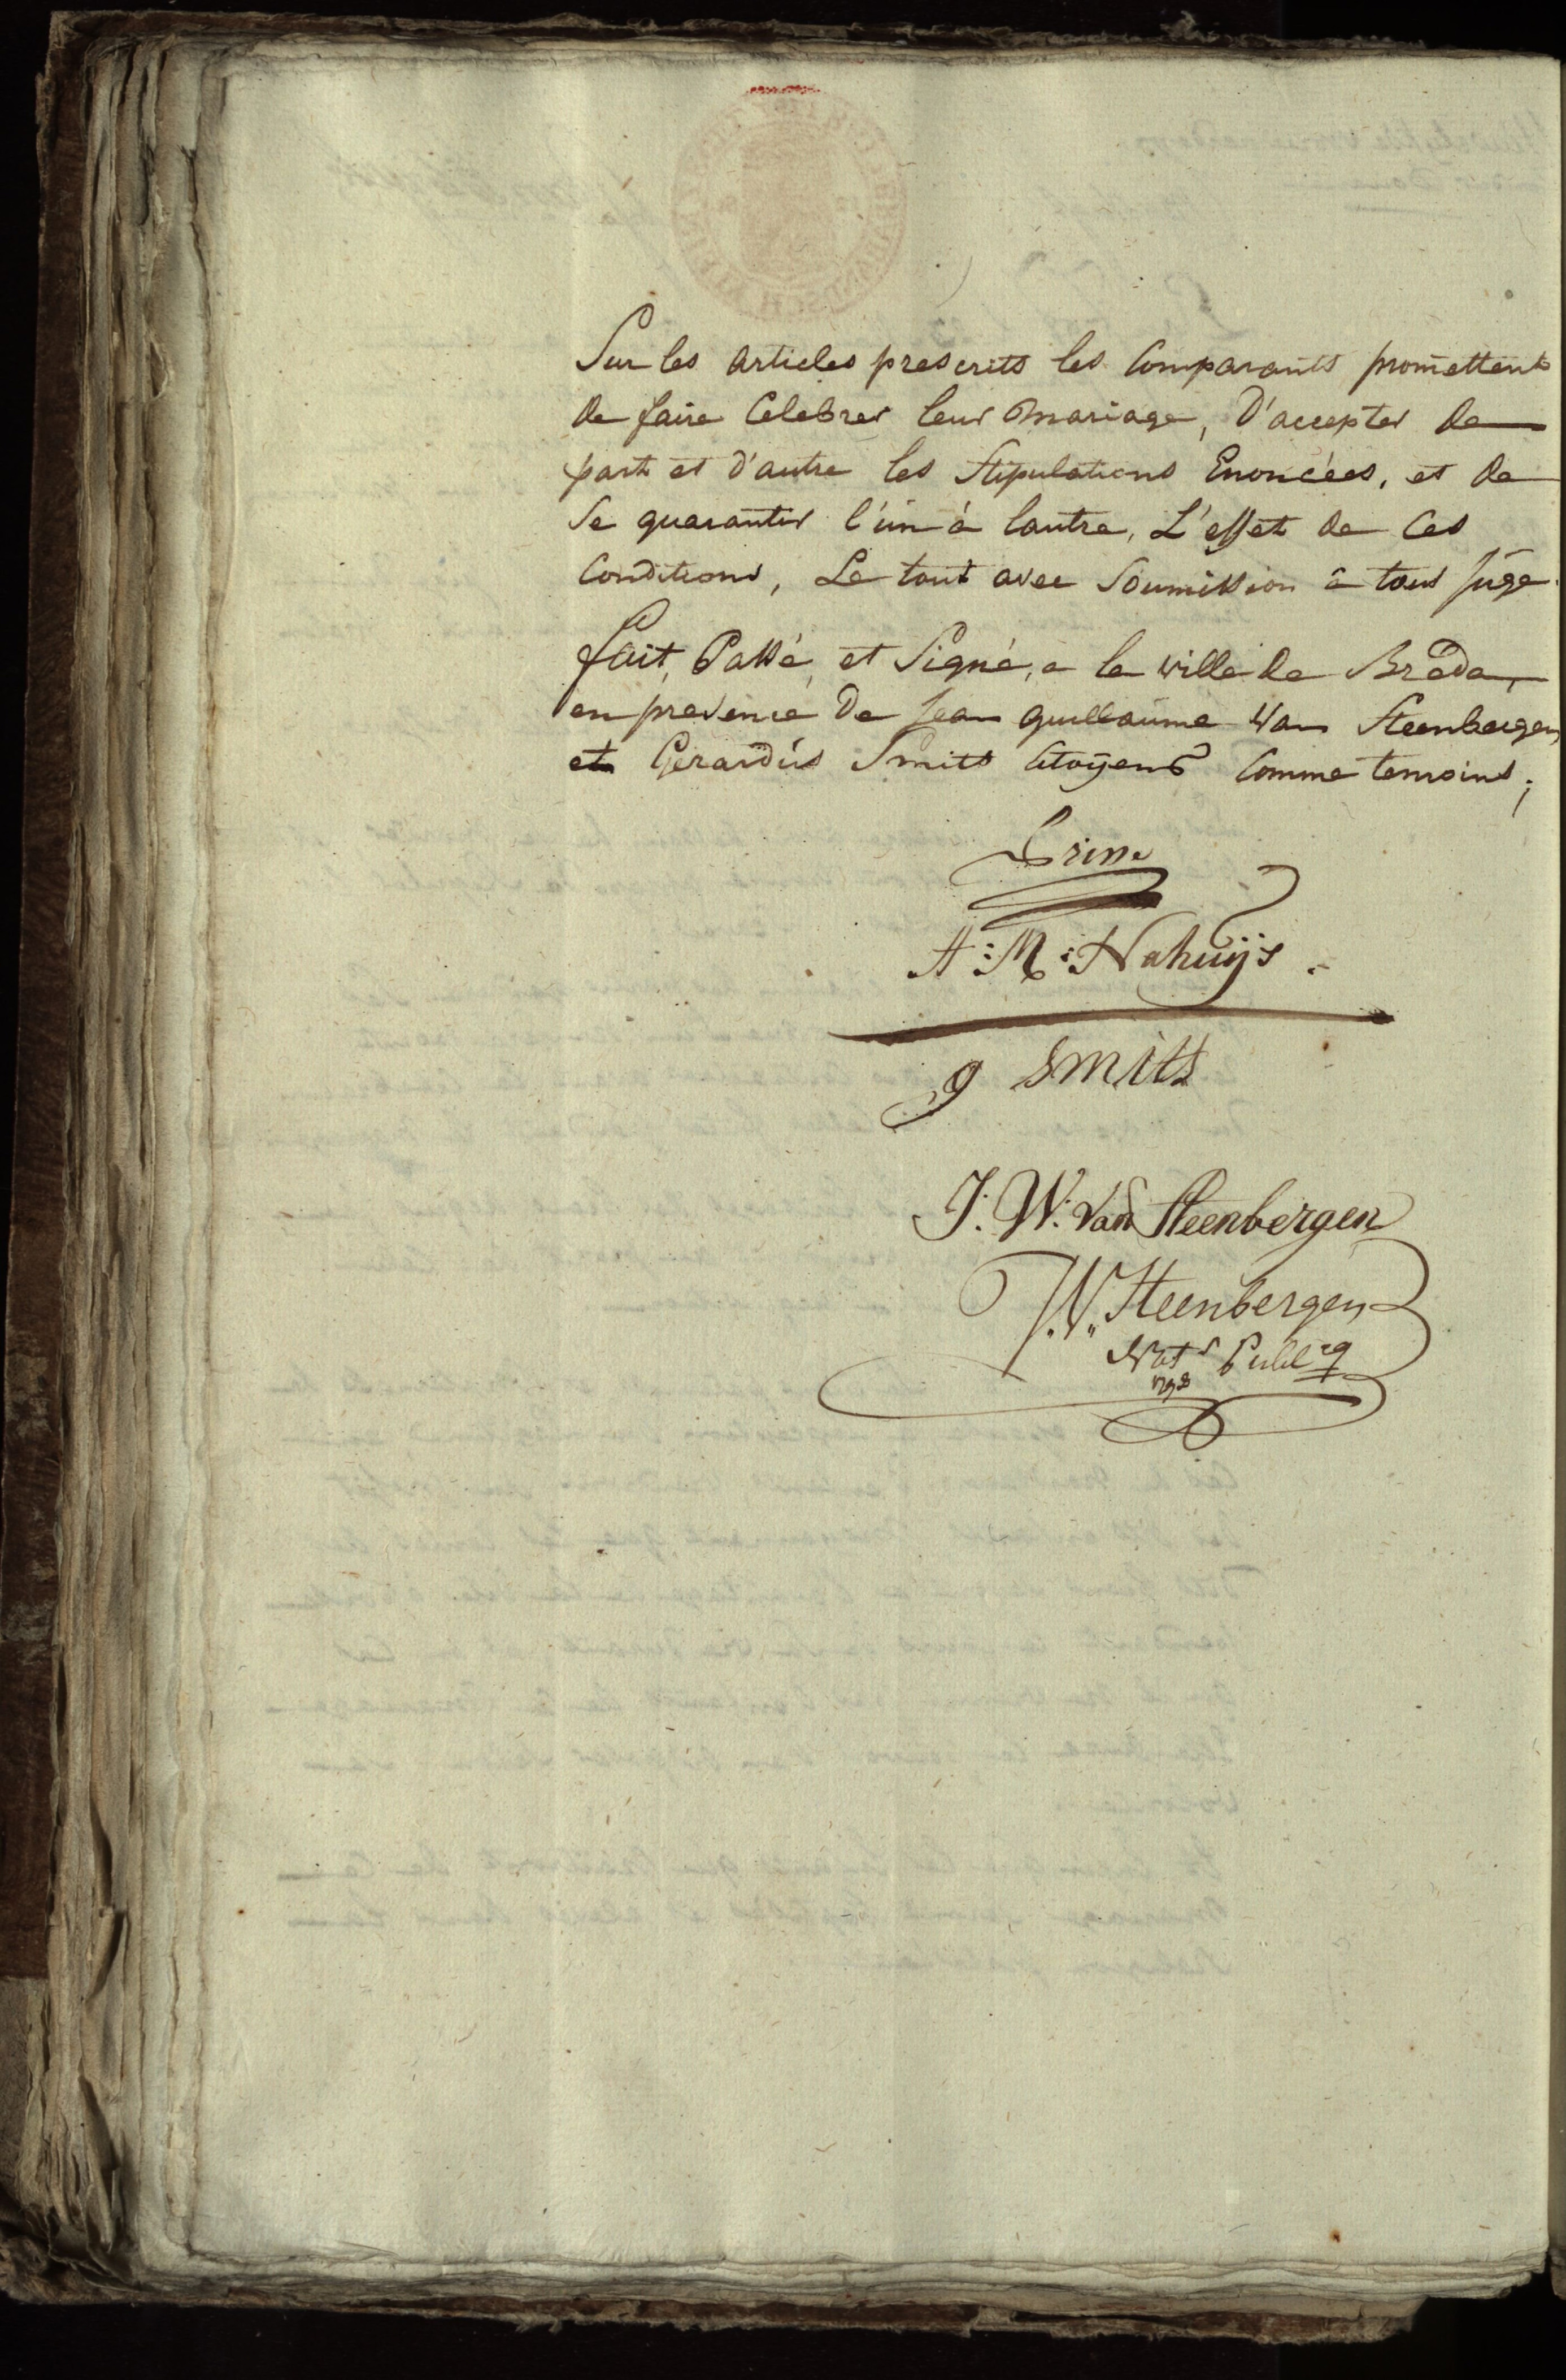 Sur les articles prescrits les Comparants promettent
de faire Celebrer leur Mariage, D'accepter de
part et d'autre les Stipulations Enoncées, et de
se guarantir l'un à lautre, L'effet de Ces
Conditions, Le tout avec Soumission à tous Juge.
fait, Passé, et Signé, a la ville de Breda,
en presence De Jean guillaume Van Steenbergen
et Gerardus Smits Citoyens Comme temoins;
A: M: Nahuijs.
g smits
J: W: Van Steenbergen
W. Steenbergen
Nots Publicq
1798